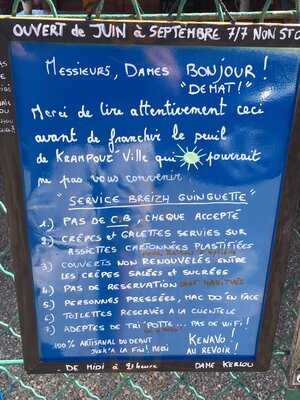 OUVERT de JUIN à SEPTEMBRE 7/7 NON STO
MESSIEURS, DAMES BONJOUR!
"DEMAT!"
Merci de lire attentivement ceci
avant de franchir le seuil
de KRAMPOUZ' VILLE qui pourrait
ne pas vous convenir
"SERVICE BREIZH GUINGUETTE"
1.) PAS DE C.B, CHEQUE ACCEPTÉ
2.) CRÊPES et GALETTES SERVIES SUR
ASSIETTES CARTONNÉES PLASTIFIÉES
3.) COUVERTS NON RENOUVELÉS ENTRE
LES CRÊPES SALÉES et SUCRÉES
4.) PAS DE RESERVATION SAUF HABITUÉS
5.) PERSONNES PRESSÉES, MAC DO EN FACE
6.) TOILETTES RESERVÉS A LA CLIENTELE
7.) ADEPTES DE TRIPOTTE... PAS DE WIFI!
100% ARTISANAL DU DEBUT
JUSQU'A LA FIN! MERCI
KENAVO!
AU REVOIR!
DE MIDI à 21 heure
DAME KERLOU